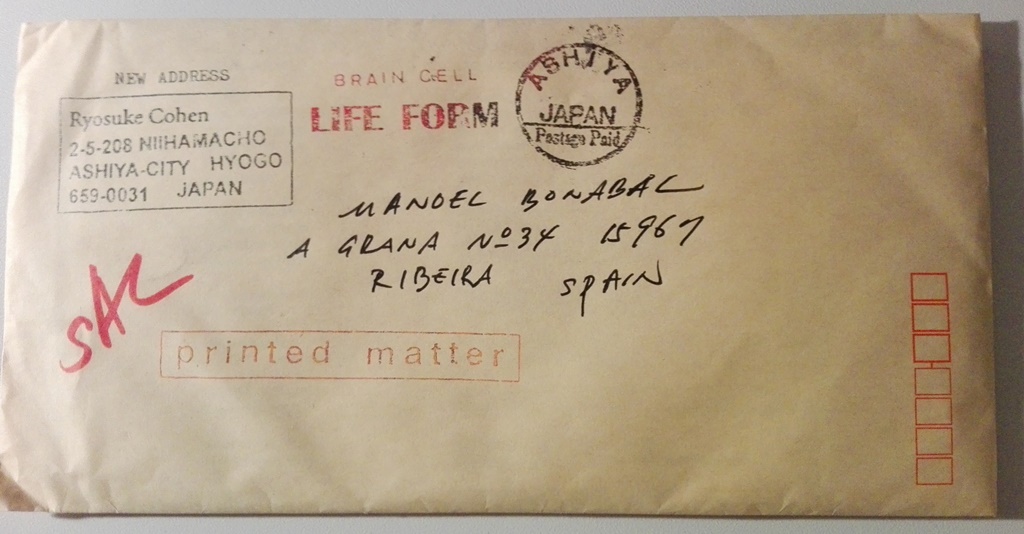 NEW ADDRESS
Ryosuke Cohen
2-5-208 NIIHAMACHO
ASHIYA-CITY HYOGO
659-0031 JAPAN
BRAIN CELL
LIFE FORM
ASHIYA
JAPAN
Postage Paid
MANOEL BONABAL
A GRANA Nº34 15967
RIBEIRA SPAIN
SAL
printed matter